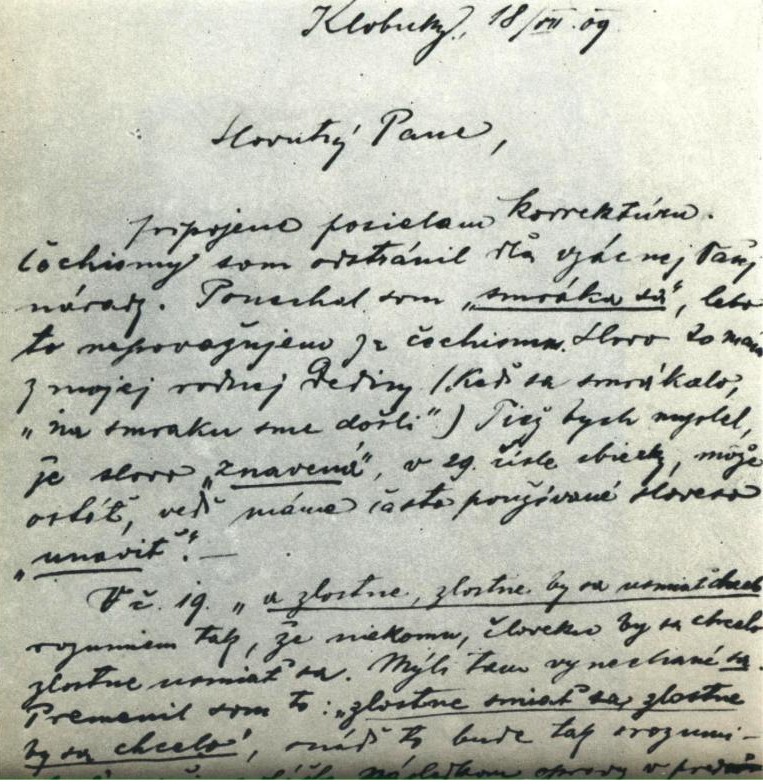 Klobuky, 18/VII. 09
Slovutný Pane,
pripojene posielam korrektúru.
Čechismy som odstránil dľa vzácnej Vašej
národy. Ponechal som „smráka sa", lebo
to nepovažujem za čechismus. Slovo to mám
z mojej rodnej Dediny (Keď sa smrákalo,
„na smraku sme došli") Tiež bych myslel,
je slovo „znavená", v 29. čísle sbierky, môže
ostáť, veď máme často používané sloveso
„unaviť".—
V č. 19. „a zlostne, zlostne by sa usmiať chcelo
rozumiem tak, že niekomu, človeku by sa chcelo
zlostne usmiať sa. Mýli tam vynechané sa.
Premenil som to: „zlostne smiať sa, zlostne
by sa chcelo", snáď to bude tak srozumi-